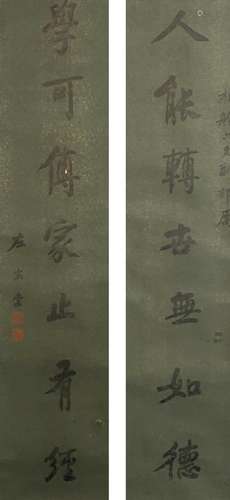 人能轉世無如德
學可傳家止有經
左宗棠